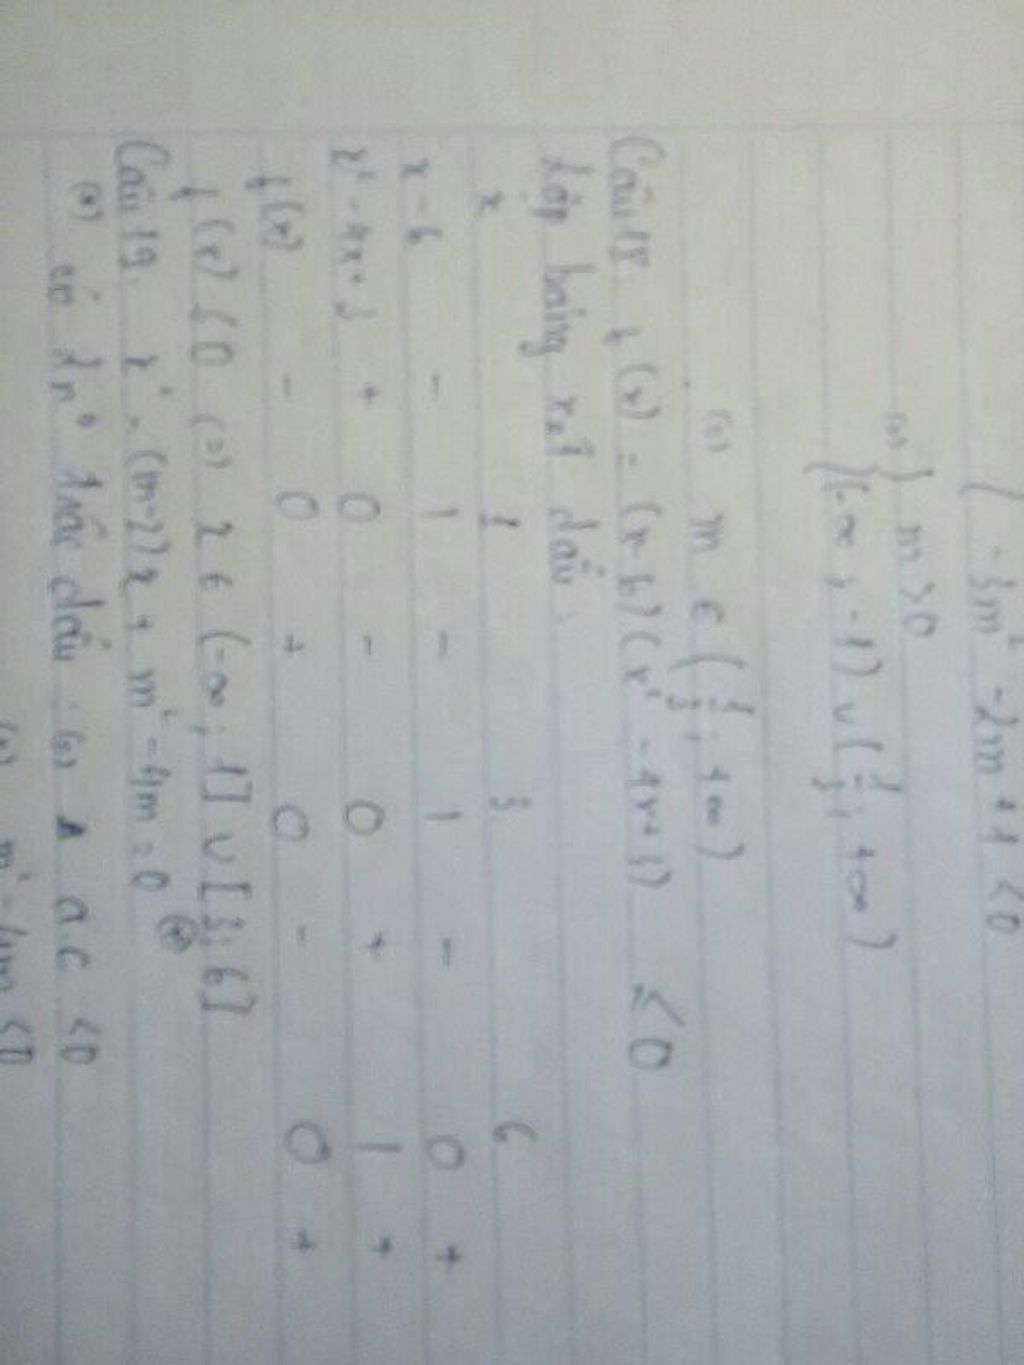 { -3m² - 2m + 1 < 0
(=) { m > 0
{ (-∞ ; -1) ∪ (1/3 ; +∞)
(=) m ∈ (1/3 ; +∞)
Câu 18. f(x) = (x-6)(x² - 4x+3) ≤ 0
Lập bảng xét dấu :
x 1 3 6
x-6 - | - | - 0 +
x² - 4x+3 + 0 - 0 + | +
f(x) - 0 + 0 - 0 +
f(x) ≤ 0 (=) x ∈ (-∞ ; 1] ∪ [3; 6]
Câu 19. x² - (m-2)x + m² - 4m = 0 (*)
(*) có 2 n° trái dấu (=) ac < 0
(=) m² - 4m < 0